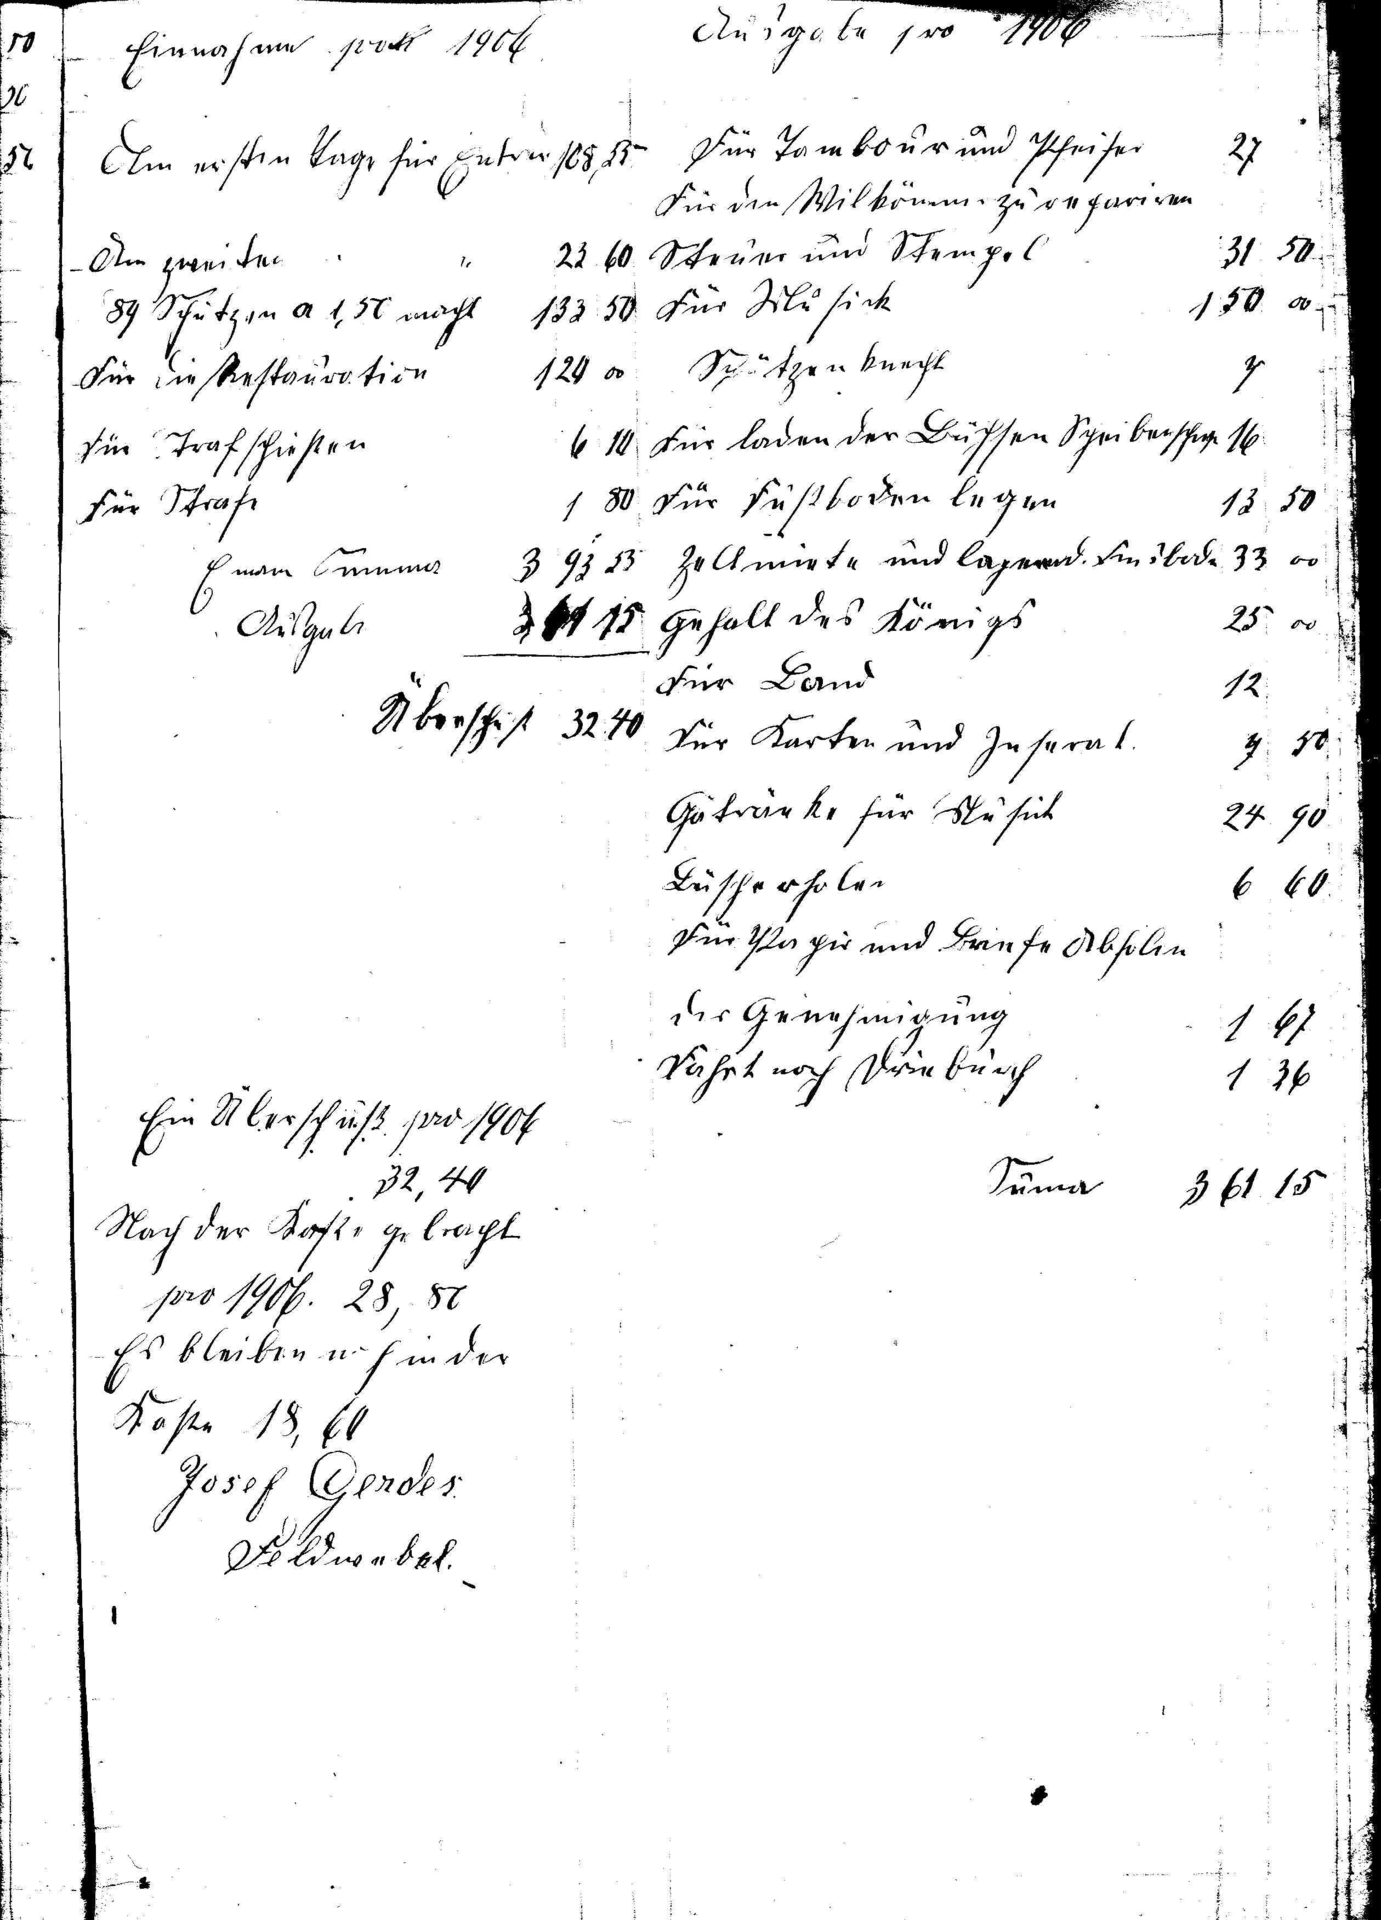 Einnahme pro 1906
Am ersten Tage für Entree 108,55
Am zweiten " " 23 60
89 Schützen a 1,50 macht 133 50
Für die Restauration 120 00
Für Trafschießen 6 10
Für Strafe 1 80
Summa 3 93 55
Ausgabe 3 61 15
Überschuß 32 40
Ein Überschuß pro 1906
32,40
Nach der Kaße gebracht
pro 1906. 28, 80
Es bleiben noch in der
Kaße 18, 60
Josef Gerdes.
Feldwebel.
Ausgabe pro 1906
Für Tambour und Pfeifer 27
Für den Wilkomm zu repariren
Steuer und Stempel 31 50
Für Musick 150 00
Schützenknecht 7
Für laden der Büchsen 16
Für Fußboden legen 13 50
Zeltmiete und 33 00
Gehalt des Königs 25 00
Für Band 12
Für Karten und Inserat. 7 50
Getränke für Musick 24 90
6 60
Für Papir und Briefe Abholen
der Genehmigung 1 67
Fahrt nach Drieburch 1 36
Suma 3 61 15
50
50